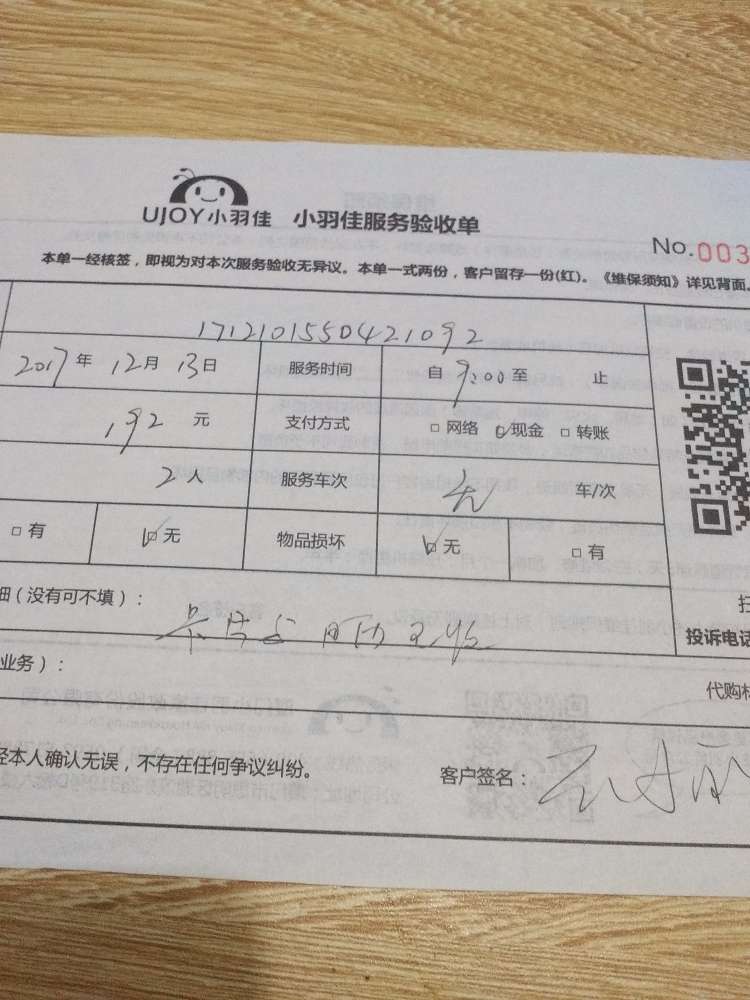 UJOY小羽佳 小羽佳服务验收单
No.003
本单一经核签，即视为对本次服务验收无异议。本单一式两份，客户留存一份(红)。《维保须知》详见背面。
1712101550421092
2017年12月13日 服务时间 自9:00至 止
192元 支付方式 □网络 ☑现金 □转账
2人 服务车次 车/次
□有 ☑无 物品损坏 ☑无 □有
细（没有可不填）：
投诉电话
业务）： 代购材
经本人确认无误，不存在任何争议纠纷。 客户签名：